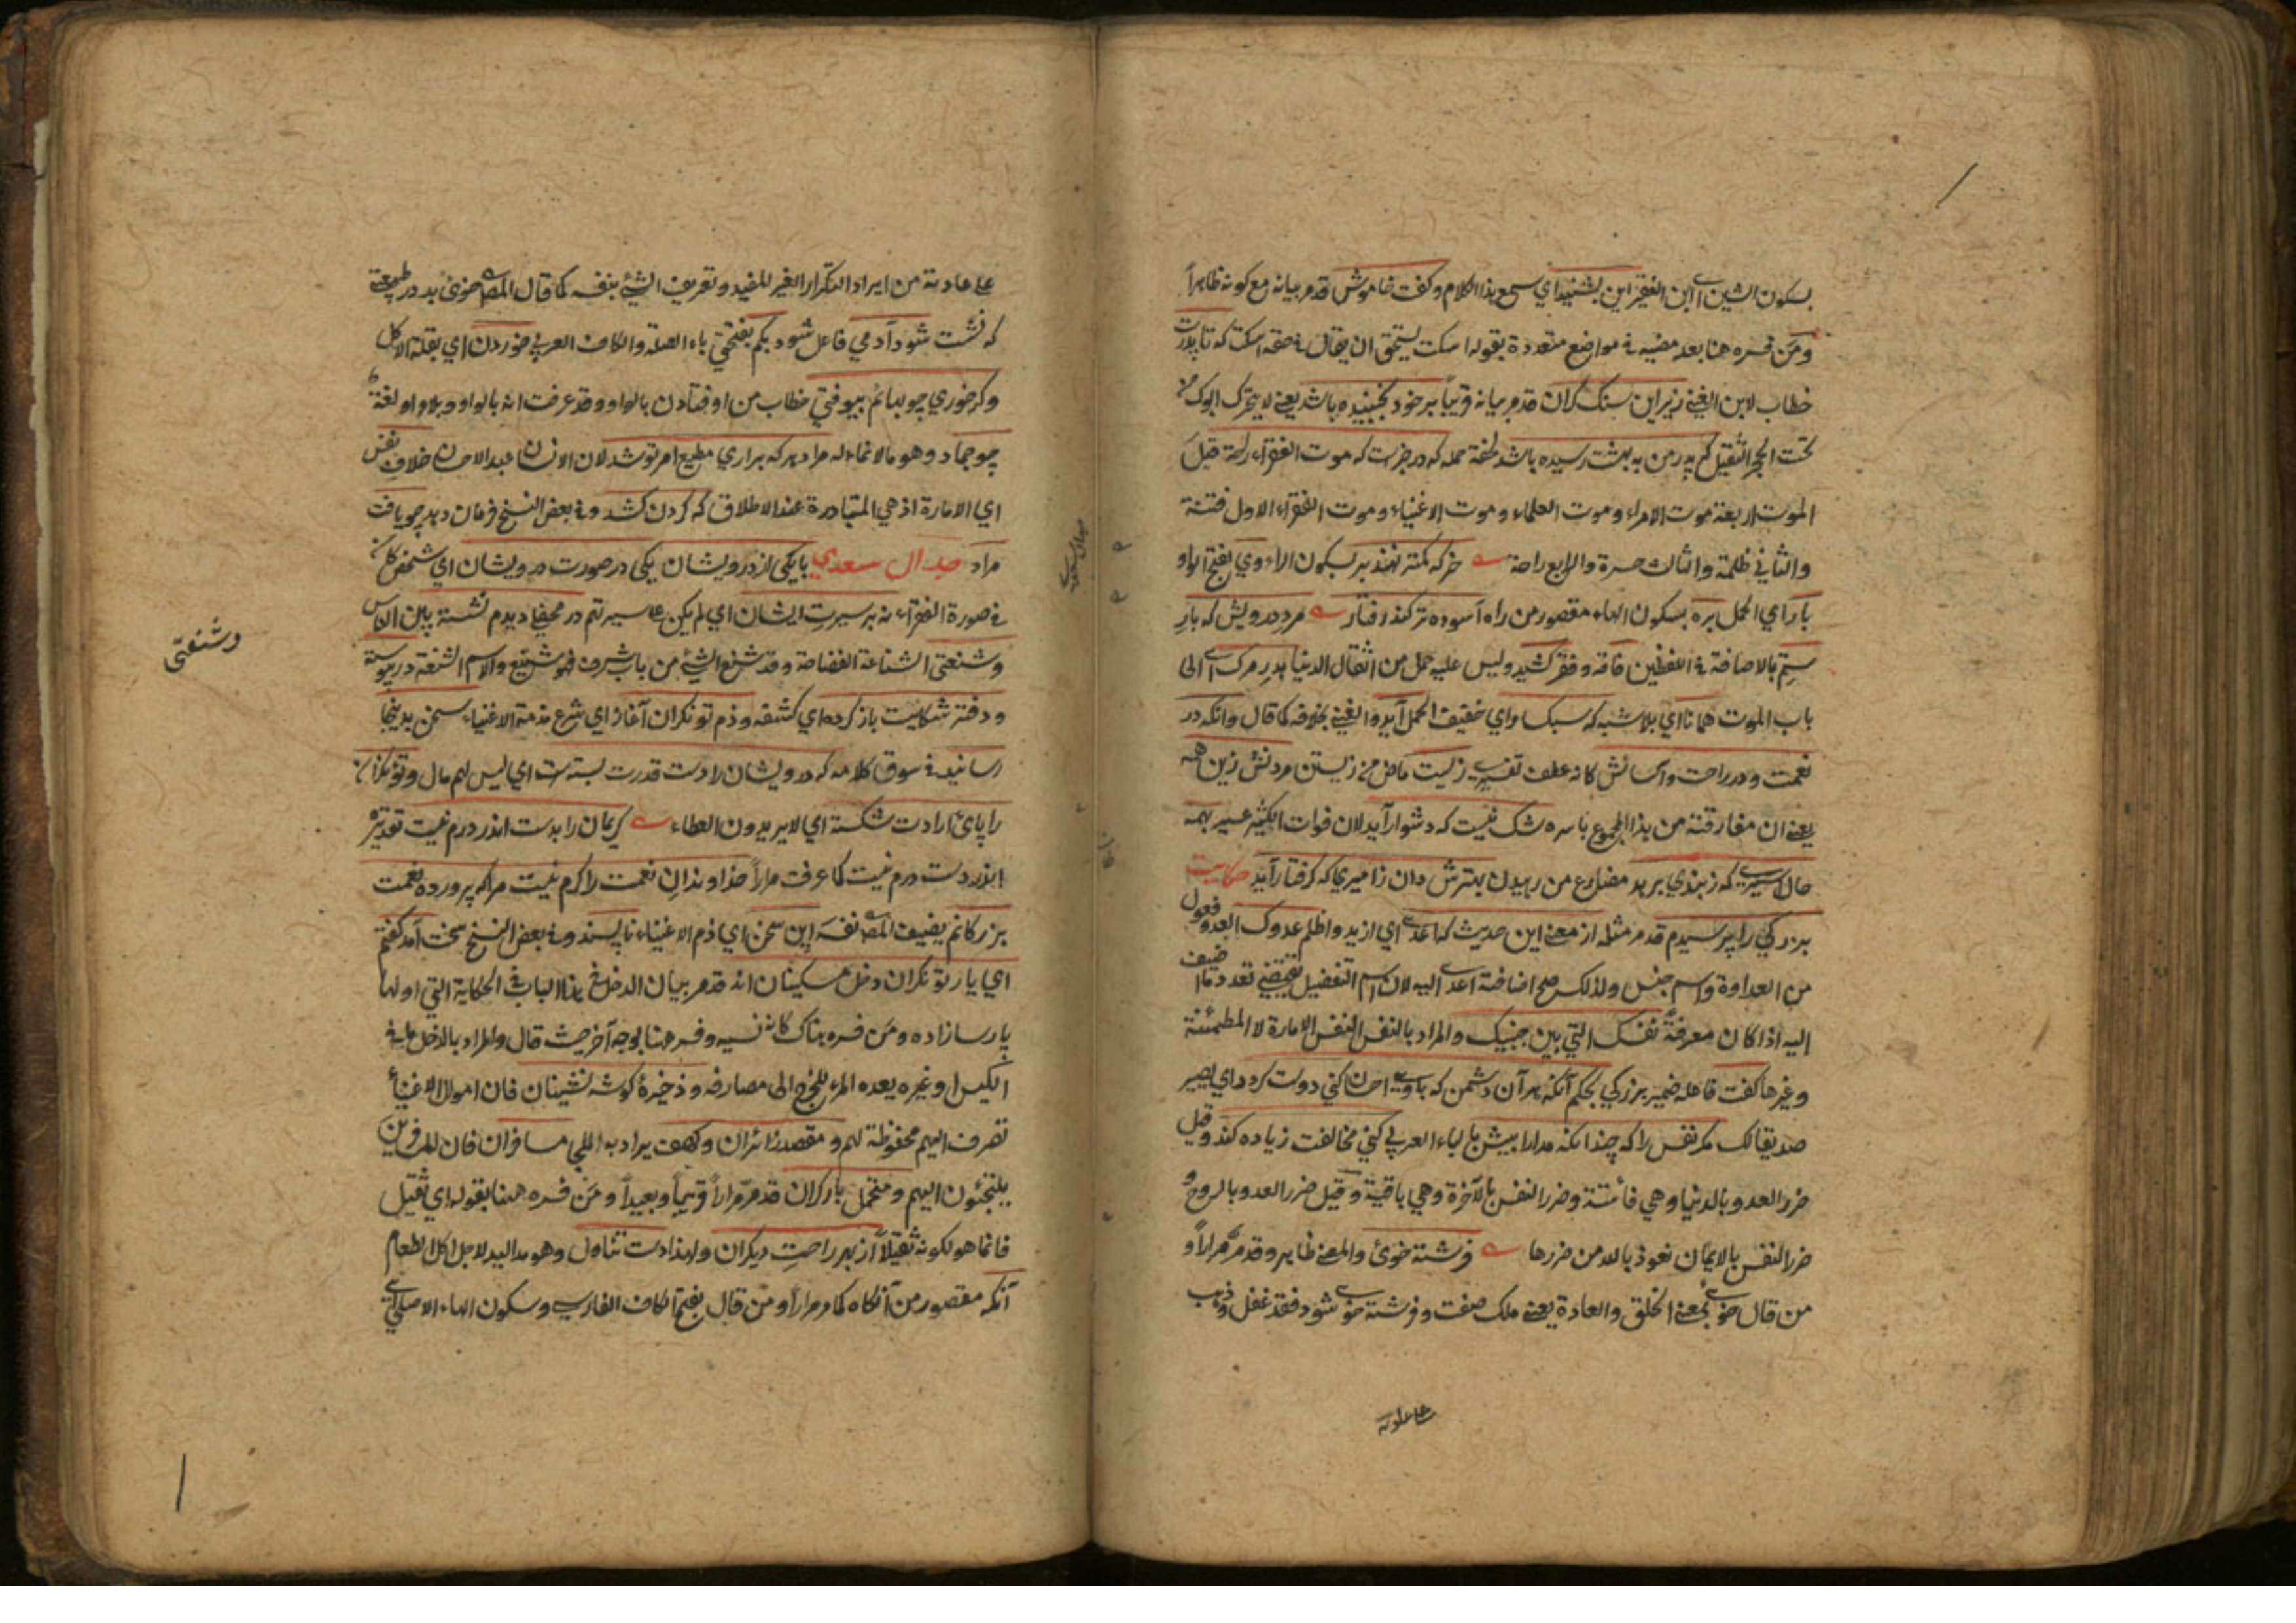 بسكون الشين اي ابن الفقير اين بشنيد اي سمع هذا الكلام وكفت خاموش قد مر بيانه مع كونه ظاهراً
ومن فسره هنا بعد مضيه في مواضع متعددة بقوله اسكت يستحق ان يقال في حقه اسكت كه تا پدرت
خطاب لابن الغني زير اين سنك كران قد مر بيانه قريباً بر خود بجنبيده باشد يعني لا يتحرك ابوك من
تحت الحجر الثقيل كه پدر من به بهشت رسيده باشد كه در خبرست كه موت الفقراء راحة قيل
الموت اربعة موت الامراء وموت العلماء وموت الاغنياء وموت الفقراء الاول فتنة
والثاني ظلمة والثالث حسرة والرابع راحة خر كه كمتر نهند بر بسكون الراء وي بفتح الواو
بار اي الحمل بره بسكون الهاء مقصور من راه آسوده تر كند رفتار مرد درويش كه بار
ستم بالاضافة في اللفظين فاقه وفقر كشيد وليس عليه حمل من اثقال الدنيا بدر مرك اي الى
باب الموت همانا اي بلا شبه كه سبك اي خفيف الحمل آيد والغني بخلافه كما قال وانكه در
نعمت ودر راحت وآسائش كانه عطف تفسير زيست ماض من زيستن مردنش زين همه
يعني ان مفارقته من هذا المجموع باسره شك نيست كه دشوار آيد لان فوات الكثير عسير بهمه
حال اسيري كه ز بندي برهد مضارع من رهيدن بهترش دان ز اميري كه كرفتار آيد حكايت
بزركي را پرسيدم قد مر مثله از معني اين حديث كه اعدى اي ازيد واظلم عدوك العدو فعول
من العداوة واسم جنس ولذلك صح اضافة اعدى اليه لان اسم التفضيل يقتضي تعدد ما اضيف
اليه اذا كان معرفة نفسك التي بين جنبيك والمراد بالنفس النفس الامارة لا المطمئنة
وغيرها كفت فاعله ضمير بزركي بحكم آنكه هر آن دشمن كه با وي احسان كني دوست كردد اي يصير
صديقا لك مكر نفس را كه چندانكه مدارا بيش بالباء العربي كني مخالفت زياده كند وقيل
ضرر العدو بالدنيا وهي فانية وضرر النفس بالآخرة وهي باقية وقيل ضرر العدو بالروح و
ضرر النفس بالايمان نعوذ بالله من ضررها فرشته خوئ والمعنى ظاهر وقد مر مراراً و
من قال خوى بمعنى الخلق والعادة يعني ملك صفت وفرشته خوى شود فقد غفل وذهب
على عادته
على عادته من ايراد التكرار الغير المفيد وتعريف الشيء بنفسه كما قال المص خوئ بد در طبيعتى
كه نشست شود آدمي فاعل شود بكم بفتحتي باء الصلة والكاف العربي خوردن اي بقلة الاكل
وكر خوري چو بهائم بيوفتي خطاب من اوفتادن بالواو وقد عرفت انه بالواو وبلا واو لغة
چو جماد وهو ما لا نماء له مراد هر كه براري مطيع امر تو شد لان الانسان عبد الاحسان خلاف نفس
اي الامارة اذ هي المتبادرة عند الاطلاق كه كردن كشد وفي بعض النسخ فرمان دهد چو يافت
مراد جدال سعدي با يكي از درويشان يكي در صورت درويشان اي شخص كائن
في صورة الفقراء نه بر سيرت ايشان اي لم يكن على سيرتهم در محفلي ديدم نشسته بين الناس
وشنعتى الشناعة الفضاحة وقد شنع الشيء من باب شرف فهو شنيع والاسم الشنعة در پيوسته
ودفتر شكايت باز كرده اي كشفه وذم توانكران آغاز اي شرع مذمة الاغنياء سخن بدينجا
رسانيد في سوق كلامه كه درويشان را دست قدرت بسته است اي ليس لهم مال وتوانكران
را پاى ارادت شكسته اي لا يريدون العطاء كريمان را بدست اندر درم نيست تقديره
اندر دست درم نيست كما عرفت مراراً خداوندان نعمت را كرم نيست مرا كه پرورده نعمت
بزركانم يضيف المص نفسه اين سخن اي ذم الاغنياء ناپسند وفي بعض النسخ سخت آمد كفتم
اي يار توانكران دخل مسكينان اند قد مر بيان الدخل في هذا الباب في الحكاية التي اولها
پارسازاده ومن فسره هناك كانه نسيه وفسر هنا بوجه آخر حيث قال والمراد بالدخل ما في
الكيس او غيره يعده المرء للخرج الى مصارفه وذخيرۀ كوشه نشينان فان اموال الاغنياء
تصرف اليهم محفوظة لهم ومقصد زائران وكهف يراد به الملجأ مسافران فان المسافرين
يلتجئون اليهم ومتحمل بار كران قد مر مراراً قريباً وبعيداً ومن فسره ههنا بقوله اي ثقيل
فانما هو لكونه ثقيلاً از بهر راحت ديكران ولهذا دست تناول وهو مد اليد لاجل اكل الطعام
آنكه مقصور من آنكاه كما مر مراراً ومن قال بفتح الكاف الفارسي وسكون الهاء الاصلي
وشنعتى